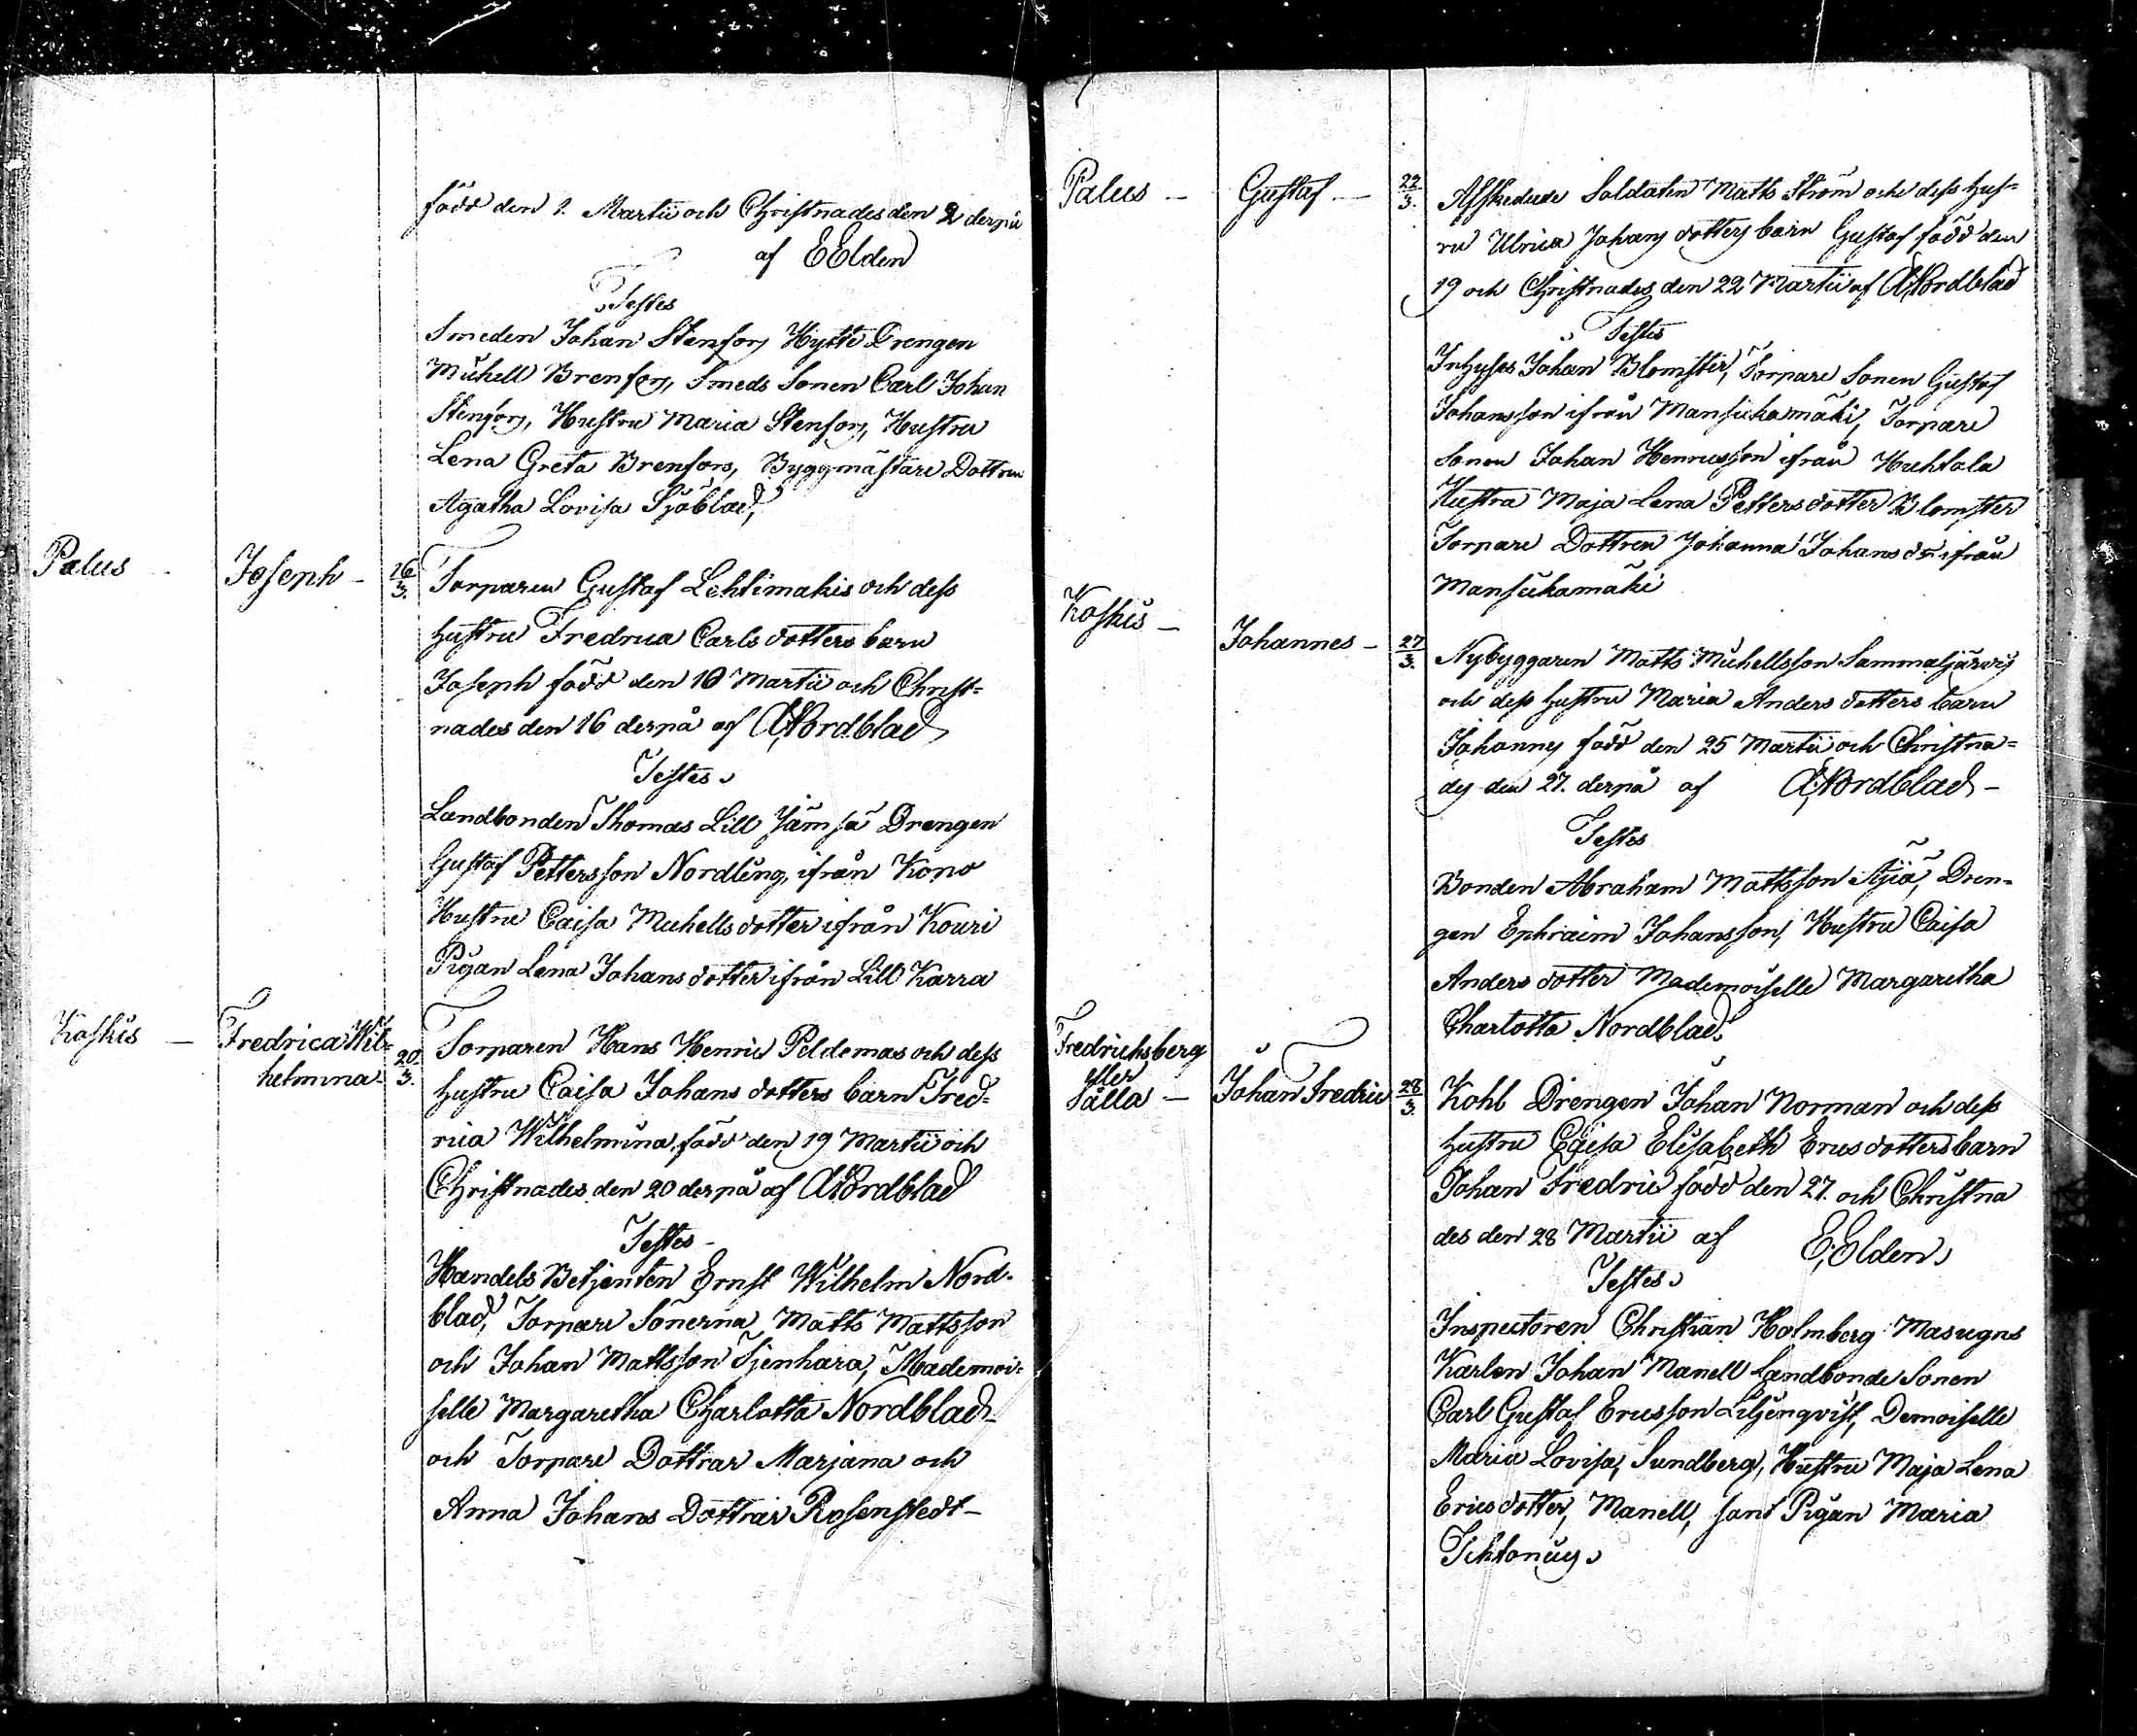 född den 1. Martii och Christnades den 2 derpå
af E Elden
Testes
Smeden Johan Stenfors, Hytte Drengen
Michell Brenfors, Smeds Sonen Carl Johan
Stenfors, Hustru Maria Stenfors, Hustru
Lena Greta Brenfors, Byggmästare Dottren
Agatha Lovisa Sjöblad,
Palus - Joseph - 16/3. Torparen Gustaf Lehtimakis och dess
hustru Fredrica Carls dotters barn
Joseph född den 10 Martii och Christ=
nades den 16 derpå af A Nordblad
Testes
Landbonden Thomas Lill Jämsä Drengen
Gustaf Pettersson Nordling, ifrån Kono
Hustru Caisa Michells dotter ifrån Kouri
Pigan Lena Johans dotter ifrån Lill Karra
Koskis - Fredrica Wil= 20/3. Torparen Hans Henric Peldemas och dess
helmina - hustru Caisa Johans dotters barn Fred=
rica Wilhelmina, född den 19 Martii och
Christnades den 20 derpå af A Nordblad
Testes -
Handels Betjenten Ernst Wilhelm Nord=
blad, Torpare Sönerna Matts Mattsson
och Johan Mattsson Tjenhara, Mademoi=
selle Margaretha Charlotta Nordblad
och Torpare Dottrar Marjana och
Anna Johans Dottrar Rosenstedt -
Palus - Gustaf - 22/3. Afskedade Soldaten Matts Ström och dess hus=
tru Ulrica Johans dotters barn Gustaf född den
19 och Christnades den 22 Martii af A Nordblad
Testes
Inhyses Johan Blomster, Torpare Sonen Gustaf
Johansson ifrån Mansickamäki, Torpare
Sonen Johan Henricsson ifrån Huhtala
Hustru Maja Lena Petters dotter Blomster
Torpare Dottren Johanna Johans dr ifrån
Mansickamäki
Koskis - Johannes - 27/3. Nybyggaren Matts Michellsson Sammaljärvis
och dess hustru Maria Anders dotters barn
Johannes född den 25 Martii och Christna=
des den 27. derpå af A Nordblad -
Testes
Bonden Abraham Mattsson Äijä, Dren=
gen Ephraim Johansson, Hustru Caisa
Anders dotter Mademoiselle Margaretha
Charlotta Nordblad.
Fredrichsberg
eller
Sälla - Johan Fredric 28/3. Kohl Drengen Johan Norman och dess
hustru Caisa Elisabeth Erics dotters barn
Johan Fredric född den 27. och Christna
des den 28 Martii af E. Elden
Testes
Inspectoren Christian Holmberg Masugns
Karlen Johan Manell Landbonde Sonen
Carl Gustaf Ericsson Liljenqvist, Demoiselle
Maria Lovisa, Sundberg, Hustru Maja Lena
Erics dotter, Manell, samt Pigan Maria